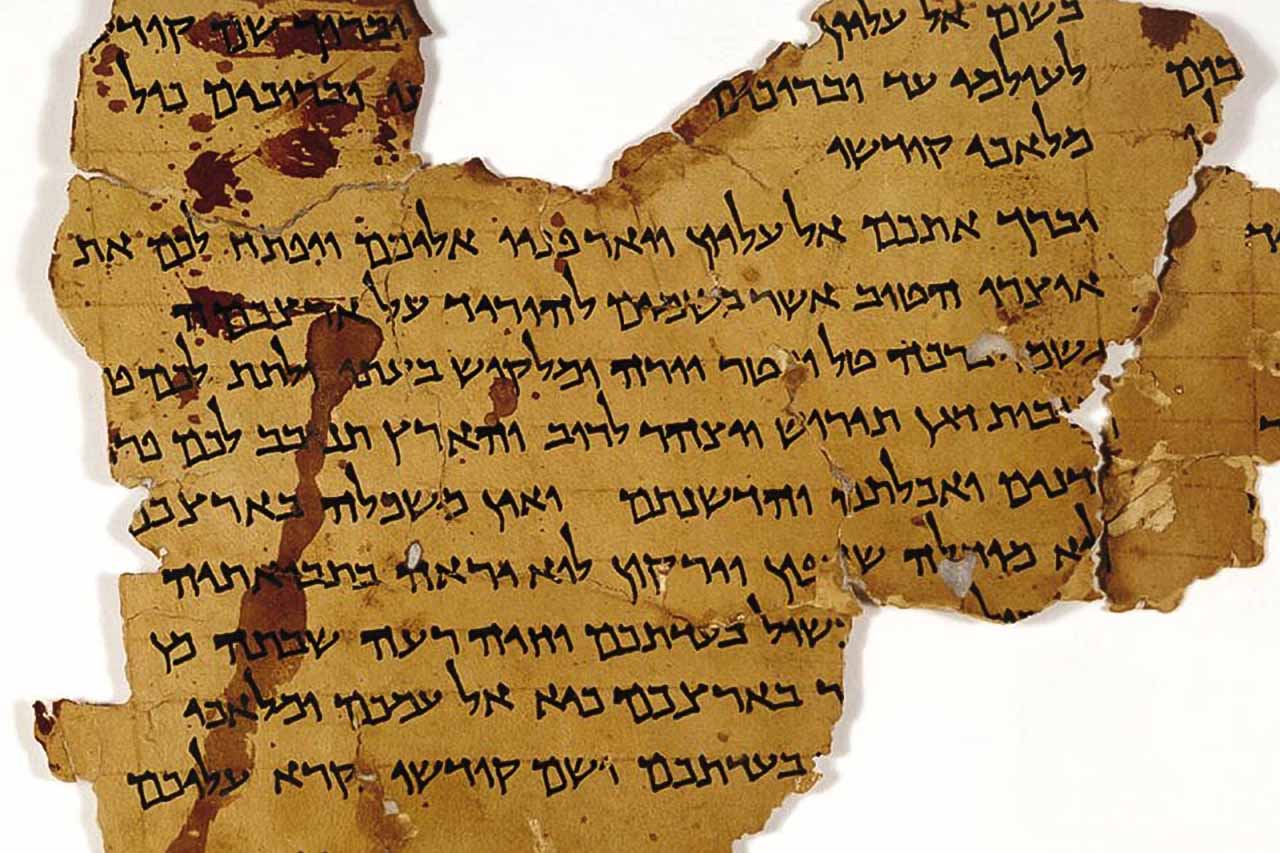 בשם אל עליון וברוך שם קודשו
לעולמי עד וברוכים וברוכים כול
מלאכי קודשו
יברך אתכם אל עליון ויאר פניו אליכם ויפתח לכם את
אוצרו הטוב אשר בשמים להוריד על ארצכמה
גשמי ברכה טל ומטר יורה ומלקוש בעתו ולתת לכם
דגן תירוש ויצהר לרוב והארץ תנובב לכם
עדנים ואכלתם והדשנתם ואין משכלה
מוחלה שדפון וירקון לוא יראה בתבואתיה
בעדתכם וחיה רעה שבתה מן
בארצכם כיא אל עמכם ומלאכי
בעדתכם ושם קודשו נקרא עליכם